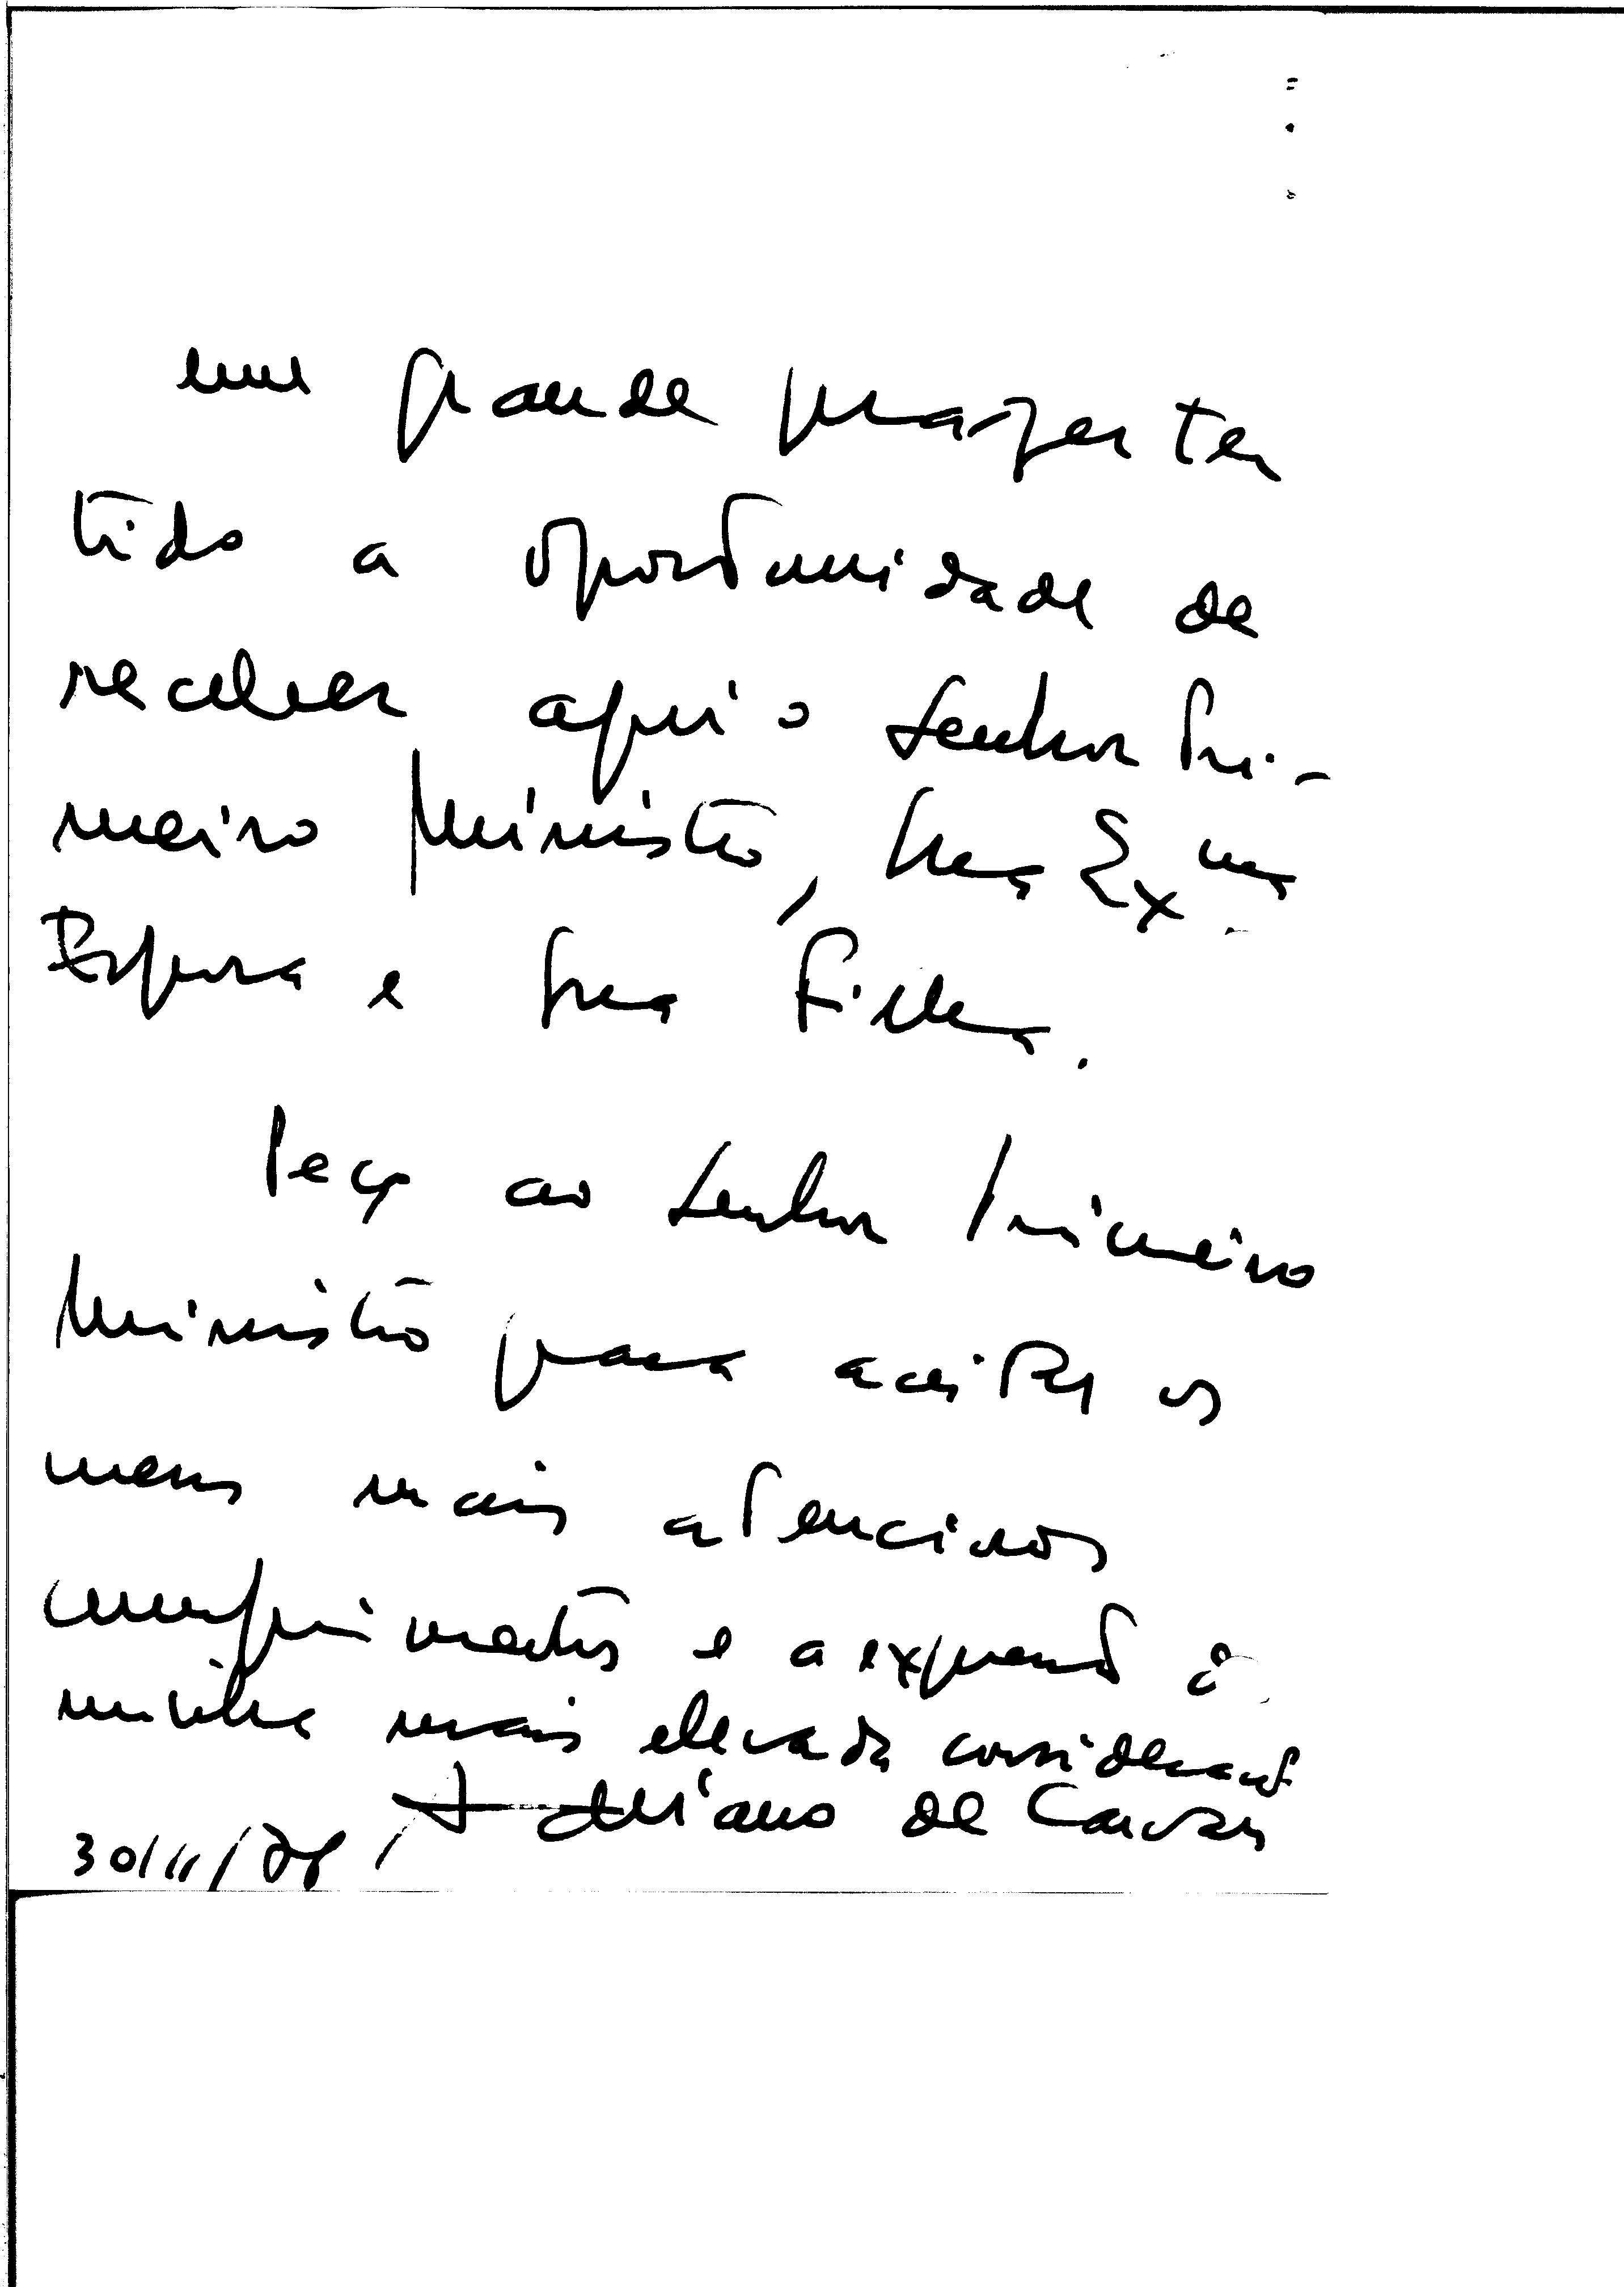 um grande prazer ter
tido a oportunidade de
receber aqui o Senhor Pri-
meiro Ministro, Sua Exma
Esposa e Sua Filha.
Peço ao Senhor Primeiro
Ministro para aceitar os
meus mais atenciosos
cumprimentos e a expressão da
minha mais elevada consideração
Adriano de Carvalho
30/11/78